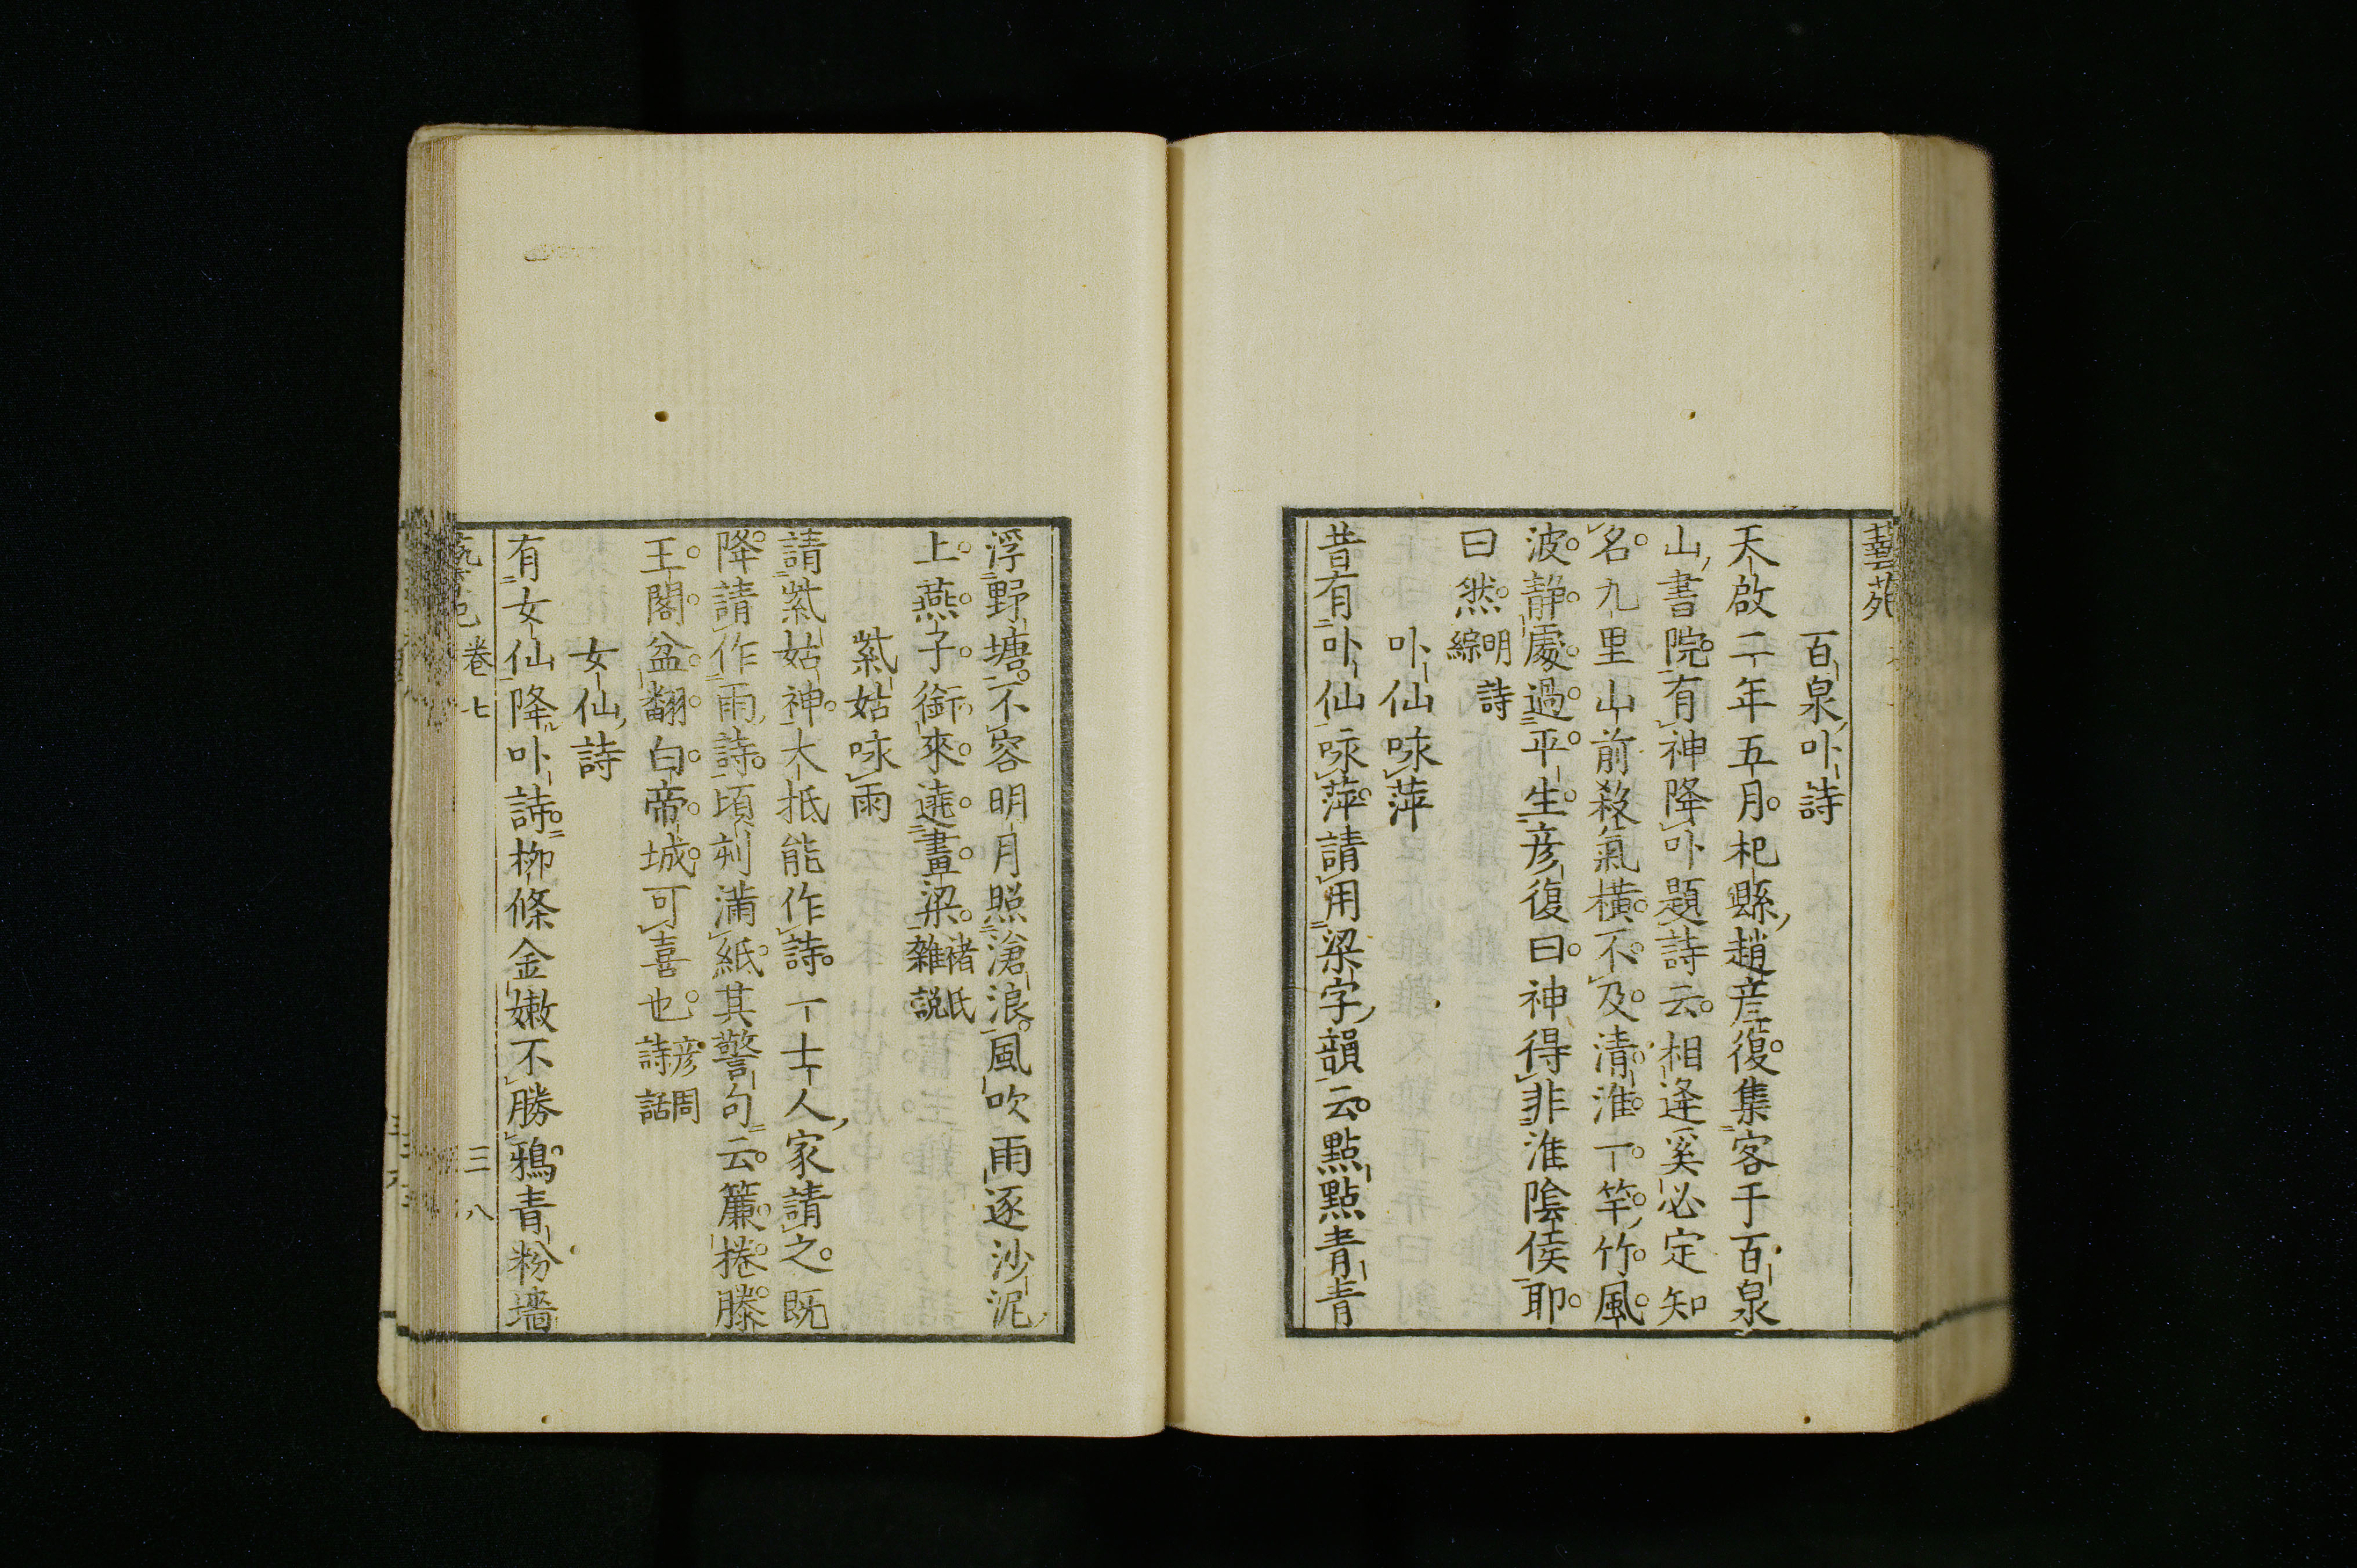 藝苑
百泉卟詩
天啟二年五月杞縣趙彦復集客于百泉
山書院有神降卟題詩云相逢奚必定知
名九里山前殺氣橫不及清淮一竿竹風
波静處過平生彦復曰神得非淮陰侯耶
曰然明詩綜
卟仙咏萍
昔有卟仙咏萍請用梁字韻云點點青青
浮野塘不容明月照滄浪風吹雨逐沙泥
上燕子銜來遶畫梁褚氏雜説
紫姑咏雨
請紫姑神大抵能作詩一士人家請之既
降請作雨詩頃刻滿紙其警句云簾捲滕
王閣盆翻白帝城可喜也彦周詩話
女仙詩
有女仙降卟詩柳條金嫩不勝鴉青粉墻
卷七 三八